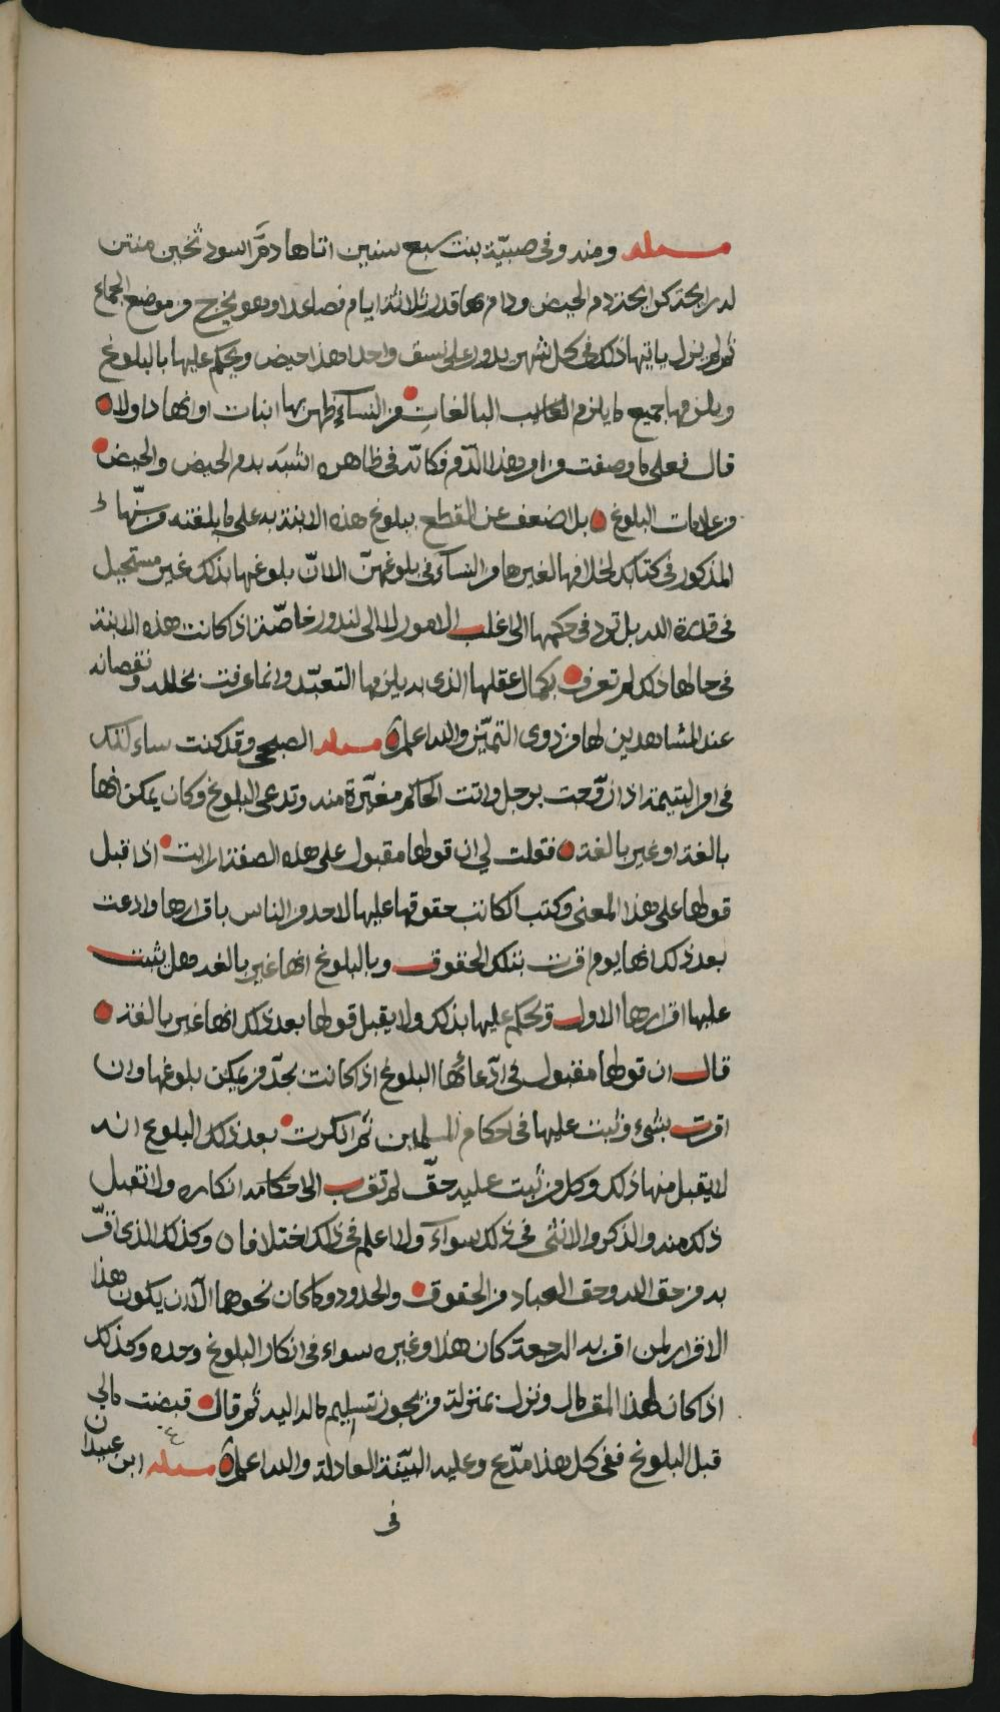 مسئلة ومنه وفي صبيّة بنت سبع سنين اتاها دمٌ اسود ثخين منتن
له رايحة كرايحة دم الحيض ودام بها قدر ثلاثة ايام فصاعدا وهو يخرج من موضع الجماع
ثم لم يزل ياتيها ذلك في كل شهر يدور على نسق واحد اهذا حيض ويحكم عليها بالبلوغ
ويلزمها جميع ما يلزم البالغات من النساء ظهر بها انبات او نهاد او لا
قال فعلى ما وصفت من امر هذا الدم فكانّه في ظاهره اشبه بدم الحيض والحيض
من علامات البلوغ بل اضعف عن القطع ببلوغ هذه الابنة به على ما بلغته من سنّها
المذكور في كتابك لخلافها لغيرها من النساء في بلوغهنّ الا انّ بلوغها بذلك غير مستحيل
في قدرة الله بل ترد في حكمها الى اغلب الامور لا الى لندور خاصّة اذ كانت هذه الابنة
في حالها ذلك لم تعرف بكمال عقلها الذي به يلزمها التعبّد وانما عرفت بخلله ونقصانه
عند المشاهدين لها من ذوي التميّز والله اعلم مسئلة الصبحي وقد كنت ساءلتك
في امر اليتيمة اذا زوّجت برجل واتت الحاكم مغيّرة منه وتدعى البلوغ وكان يمكن انها
بالغة او غير بالغة فقلت لي ان قولها مقبول على هذه الصفة ارايت اذا قبل
قولها على هذا المعنى وكتب الكاتب حقوقها عليها لاحد من الناس باقرارها وادعت
بعد ذلك انها يوم اقرت بتلك الحقوق وبالبلوغ انها غير بالغة هل يثبت
عليها اقرارها الاول ويحكم عليها بذلك ولا يقبل قولها بعد ذلك انها غير بالغة
قال ان قولها مقبول في ادّعائها البلوغ اذا كانت بحدّ من يمكن بلوغها وان
اقرت بشيء وثبت عليها في احكام المسلمين ثم انكرت بعد ذلك البلوغ انه
لا يقبل منها ذلك وكل من ثبت عليه حقّ لم تقرب الى احكامه انكاره ولا تقبل
ذلك منه والذكر والانثى في ذلك سواء ولا اعلم في ذلك اختلافا وكذلك الذي اقرّ
به من حق الله وحق العباد من الحقوق والحدود وما كان نحوهما الا ان يكون هذا
الاقرار لمن اقر به الرجعة كان هذا وغيره سواء في انكار البلوغ وحده وكذلك
اذا كان لهذا المقر مال ونزل بمنزلة من يجوز تسليم ماله اليه ثم قال قبضت مالي
قبل البلوغ ففي كل هذا مدّع وعليه البيّنة العادلة والله اعلم مسئلة ابن عبيدان
في